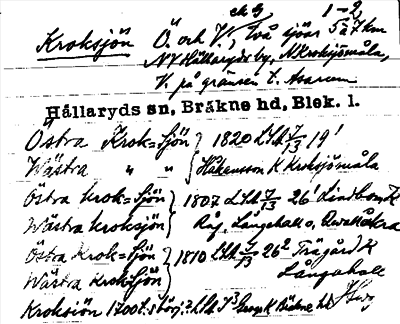 ck G 1-2
Kroksjön Ö. och V., två sjöar 5 à 7 km
NV Hällaryds by, N Kroksjömåla,
V. på gränsen t. Asarum
Hällaryds sn, Bräkne hd, Blek. l.
Östra Krok=Sjön } 1820 LSA 7/13 19'
Wästra " " Håkansson K Kroksjömåla
Östra krok=Sjön } 1807 LSA 7/13 26' Lindbom K
Wästra kroksjön Råg. Långehall o.
Östra Krok=Sjön } 1810 LSA 7/13 26² Trägård K
Wästra Kroksjön Långehall
Kroksiön 1700t. Bräkne hd